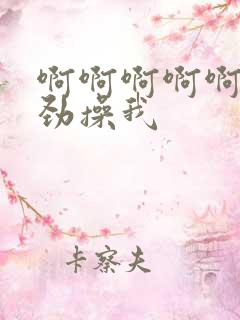 啊啊啊啊啊
劲操我
卡察夫